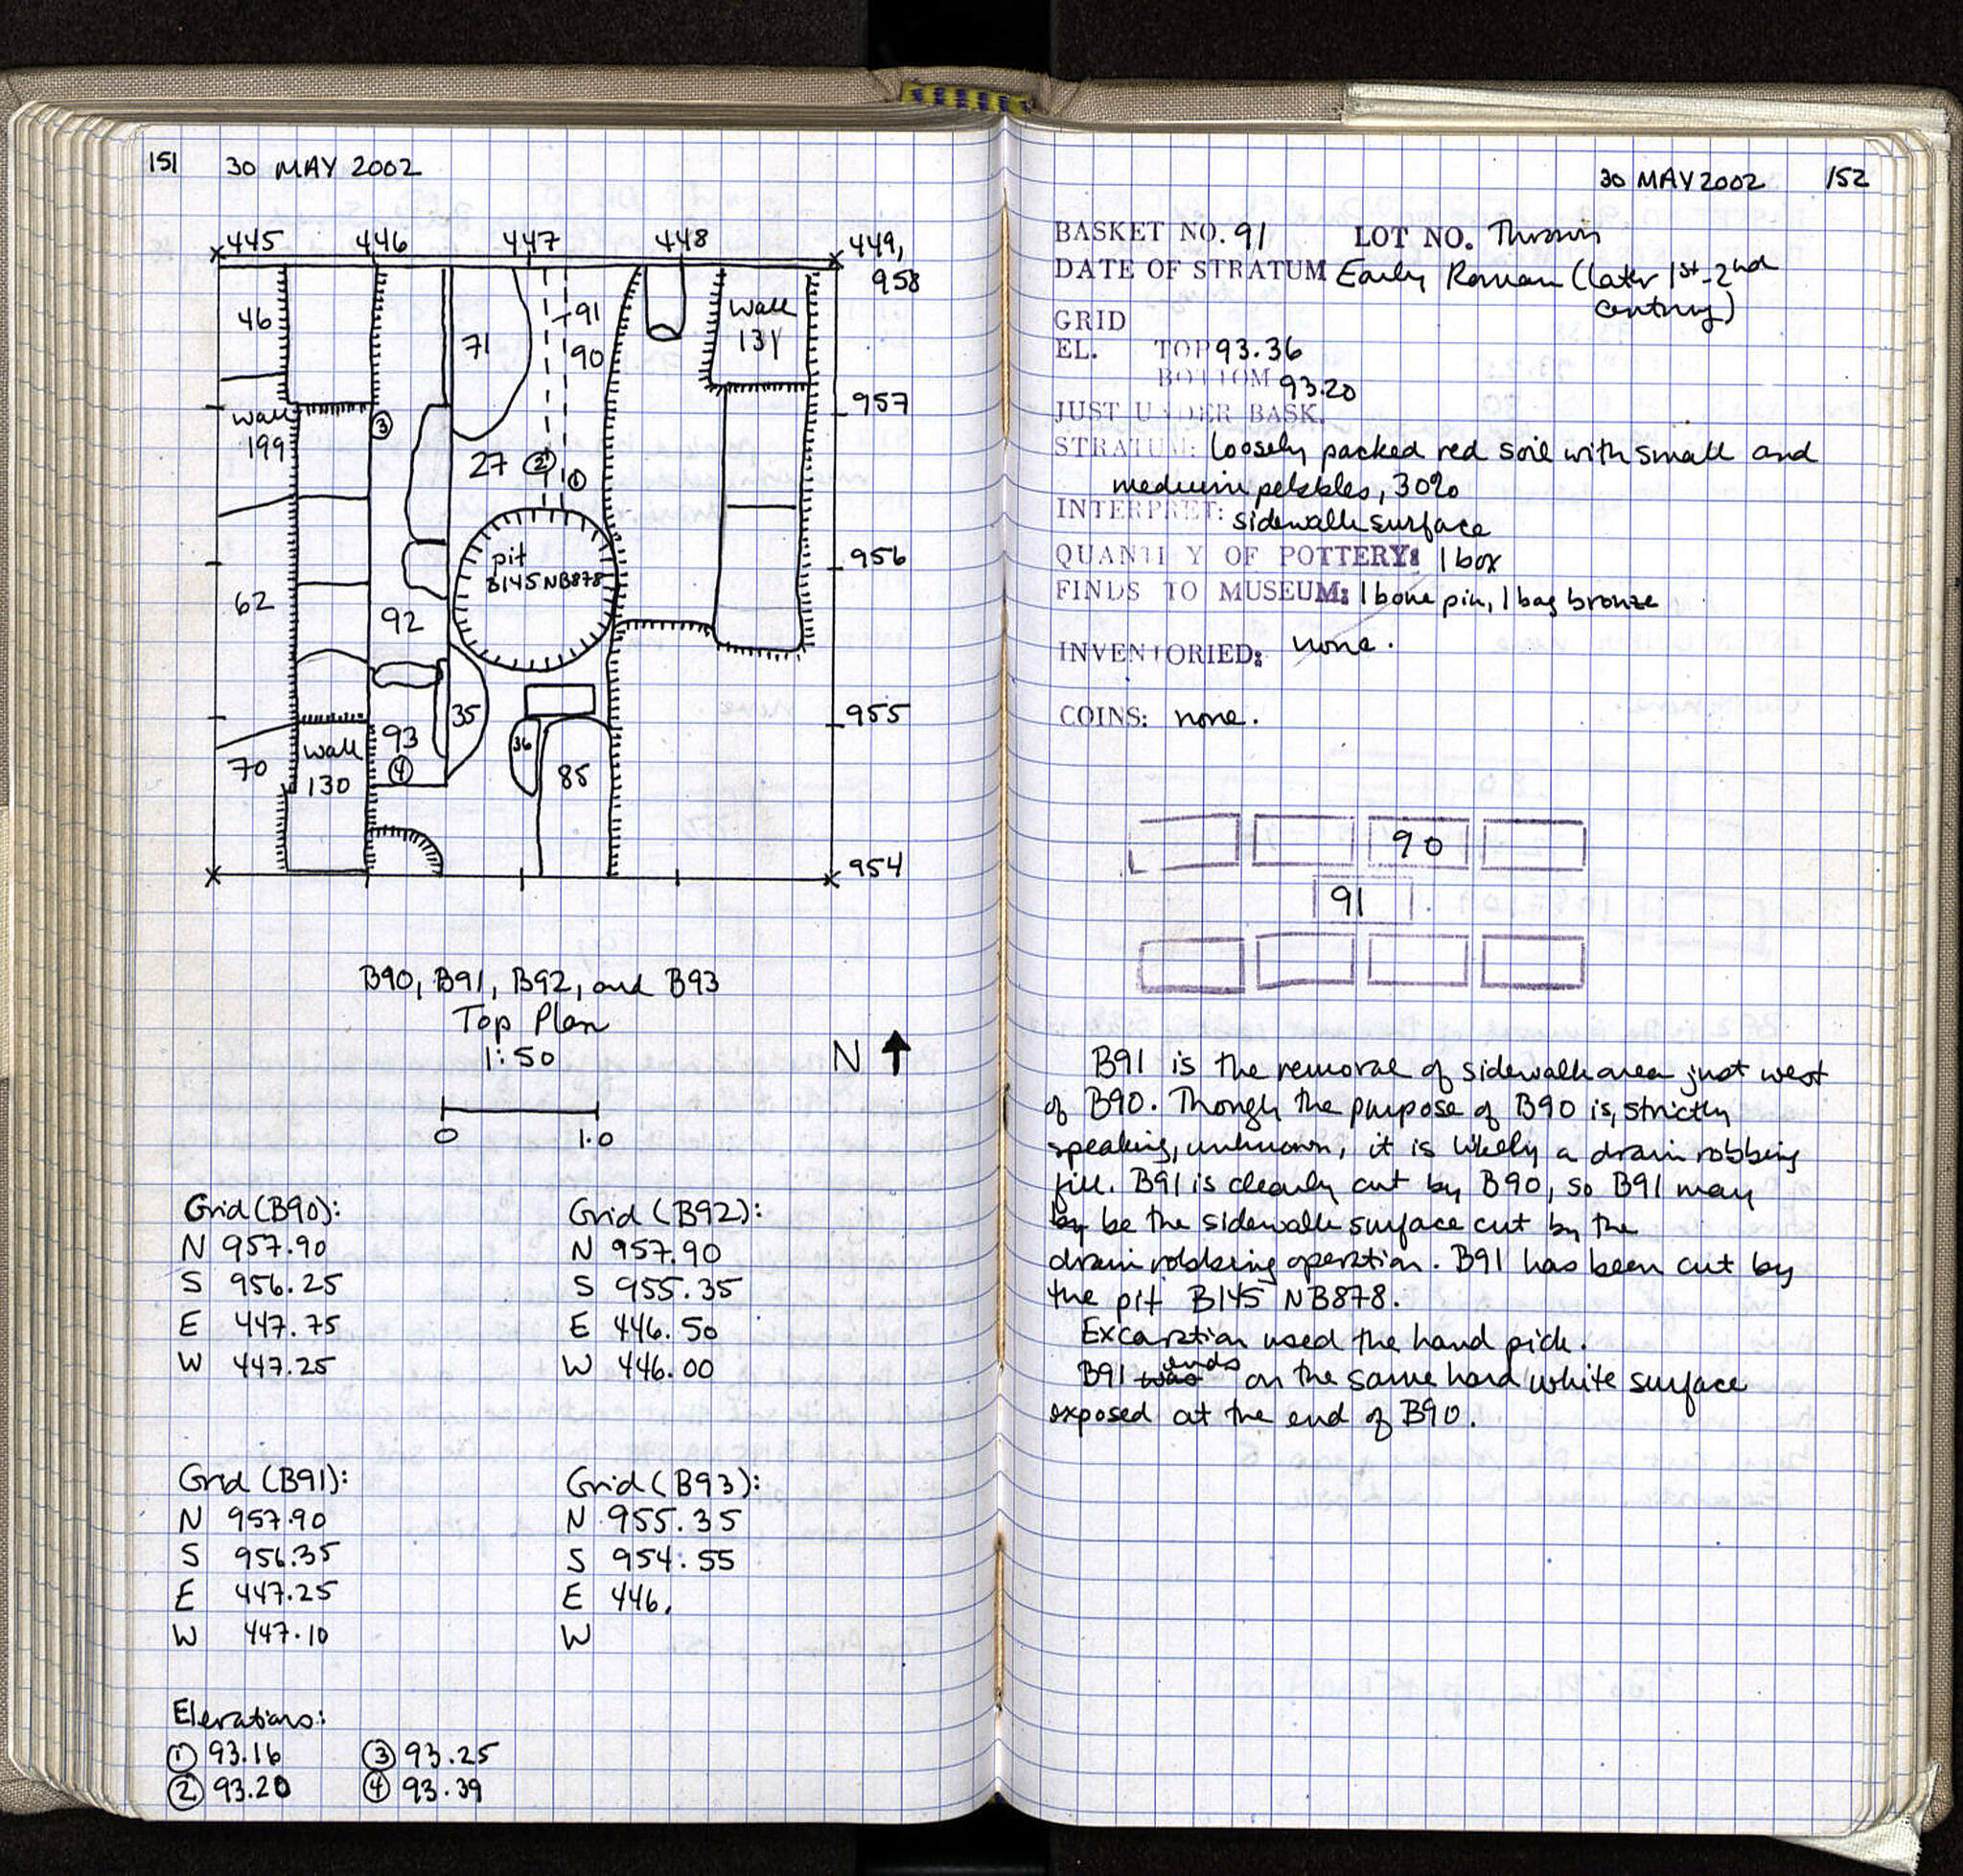 151 30 MAY 2002
445 446 447 448 449,
958
46
71
91
90
Wall
131
957
Wall
199
3
27 2
1
956
pit
B145NB878
62
92
955
35
36
93
Wall
130
70
4
85
954
B90, B91, B92, and B93
Top Plan
1:50
N
0 1.0
Grid (B90):
N 957.90
S 956.25
E 447.75
W 447.25
Grid (B92):
N 957.90
S 955.35
E 446.50
W 446.00
Grid (B91):
N 957.90
S 956.35
E 447.25
W 447.10
Grid (B93):
N 955.35
S 954.55
E 446.
W
Elevations:
① 93.16 ③ 93.25
② 93.20 ④ 93.39
30 MAY 2002 152
BASKET NO. 91 LOT NO. Thrown
DATE OF STRATUM Early Roman (later 1st-2nd
century)
GRID
EL. TOP 93.36
BOTTOM 93.20
JUST UNDER BASK.
STRATUM: loosely packed red soil with small and
medium pebbles, 30%
INTERPRET: sidewalk surface
QUANTITY OF POTTERY: 1 box
FINDS TO MUSEUM: 1 bone pin, 1 bag bronze
INVENTORIED: none.
COINS: none.
90
91
B91 is the removal of sidewalk area just west
of B90. Though the purpose of B90 is, strictly
speaking, unknown, it is likely a drain robbing
fill. B91 is clearly cut by B90, so B91 may
by be the sidewalk surface cut by the
drain robbing operation. B91 has been cut by
the pit B145 NB878.
Excavation used the hand pick.
B91 was ends on the same hard white surface
exposed at the end of B90.